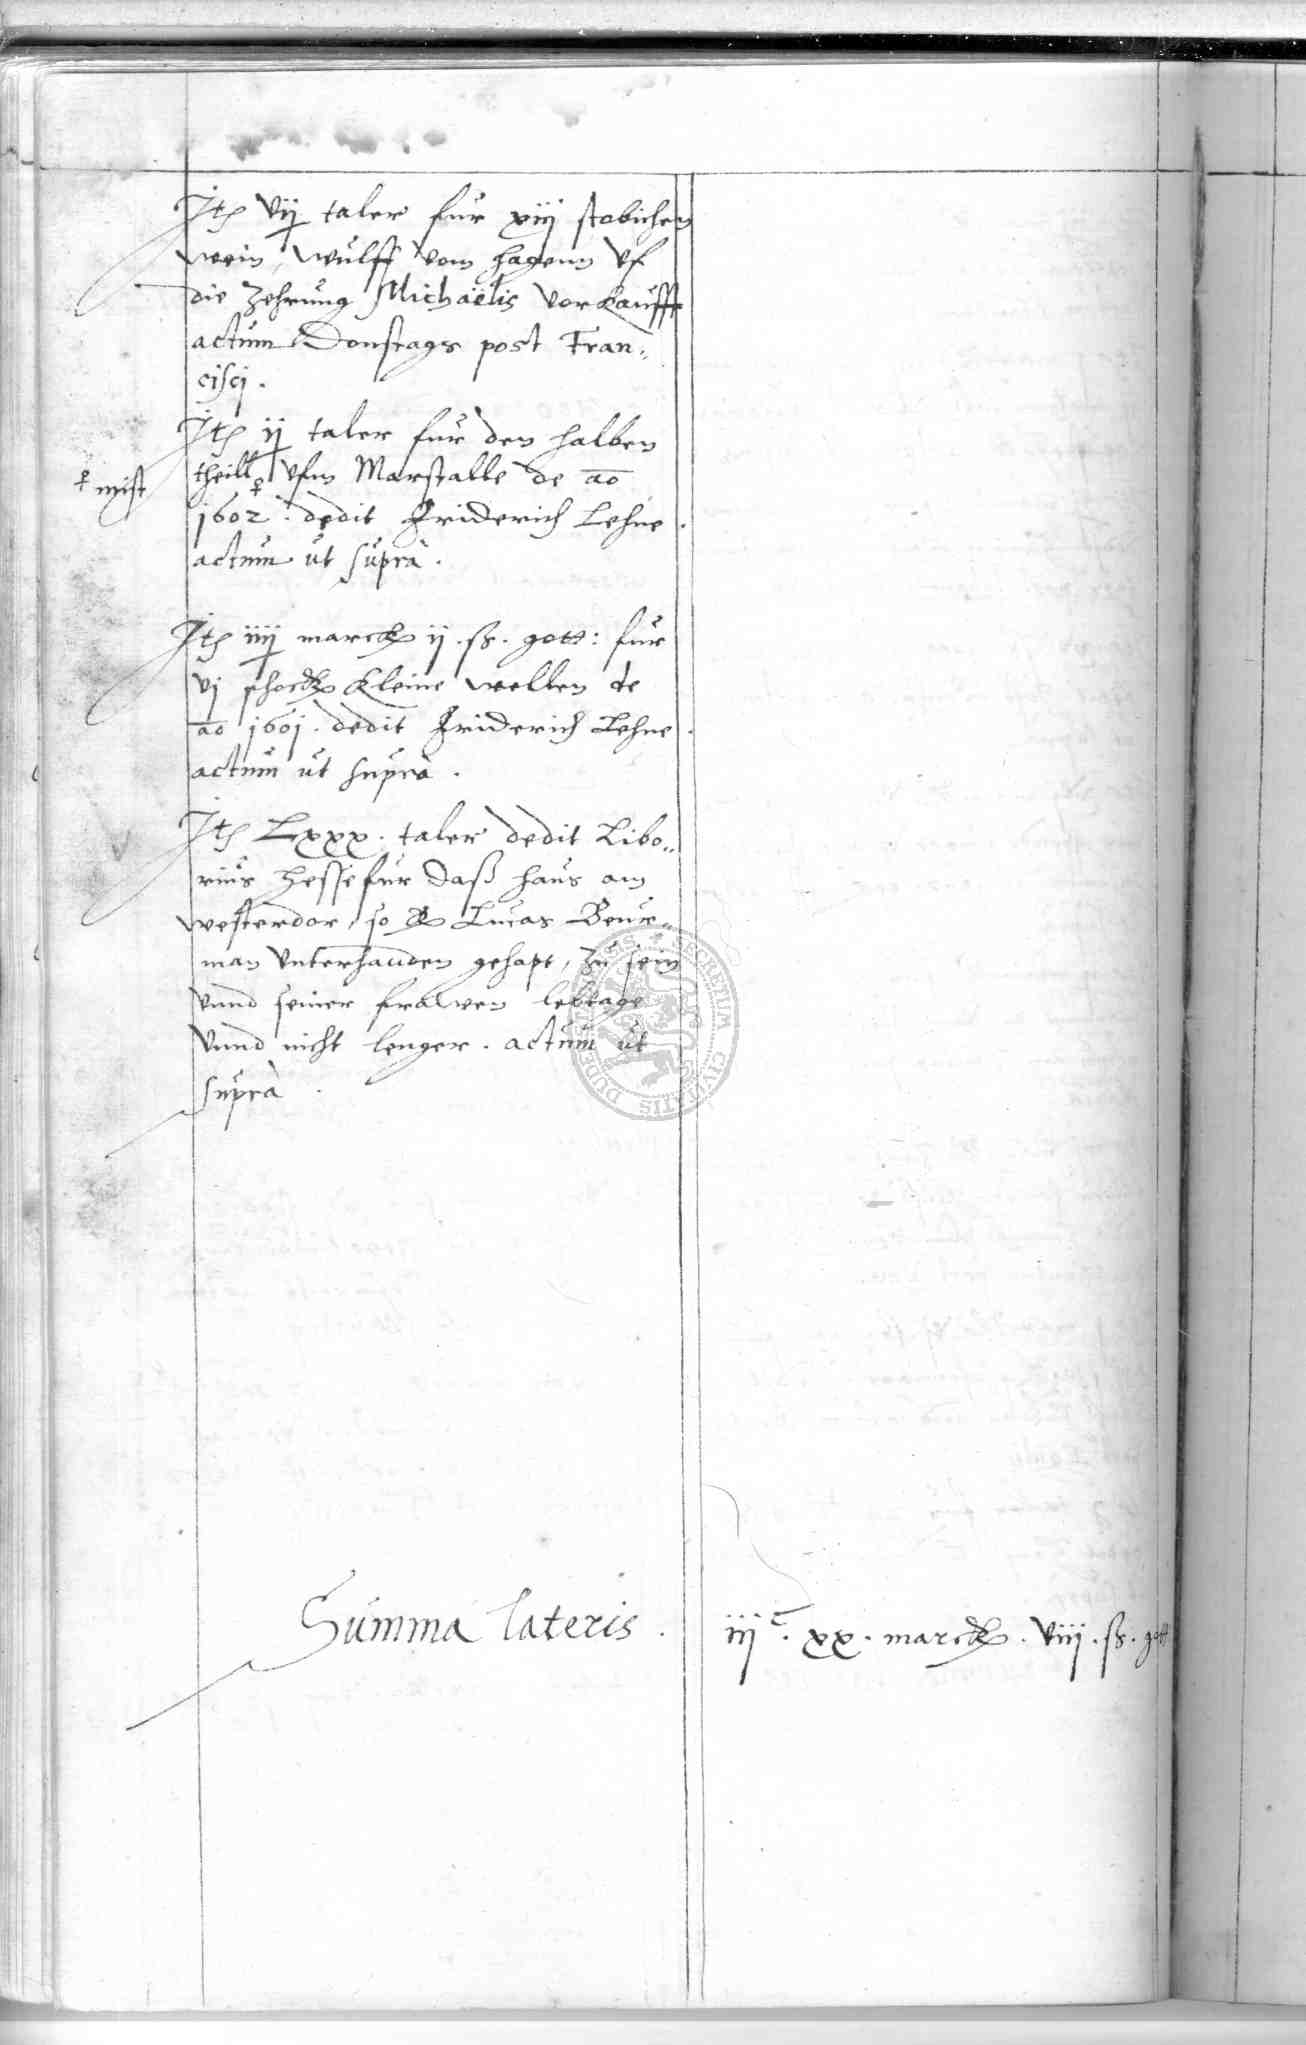 Jt) vij taler fur xiij stobichen
wein, Wulff vom Hagenn vf
die Zehrung Michaëlis vorkaufft
actum Donstags post Fran„
cisci.
Jt) ij taler fur den halben
theill vfm Marstalle de ao
mist
1602. dedit Friderich Lehne.
actum ut supra.
Jt) iiij marck ij. ß. gott: fur
vj schock kleine wellen de
ao 1601. dedit Friderich Lehne.
actum ut supra.
Jt) Lxxx. taler dedit Libo„
rius Hesse fur daß haus am
westerdor, so Lucas Beur„
man vnterhanden gehapt, zu sein
vnnd seiner frawen lebtage
vnnd nicht lenger. actum ut
supra.
SECRETUM CIVITATIS DUDERSTADENSIS
Summa lateris. iij c. xx. marck. viij. ß. gott